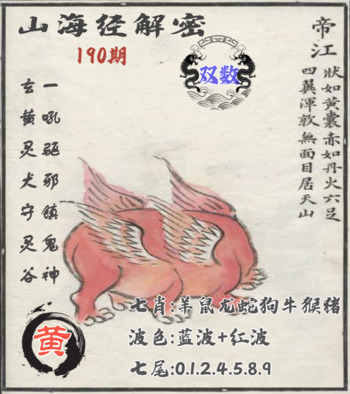 山海经解密
190期
双数
帝江
狀如黄囊赤如丹火六足
四翼渾敦無面目居天山
一吼驅邪鎮鬼神
玄黄灵犬守灵谷
七肖:羊鼠龙蛇狗牛猴猪
波色:蓝波+红波
七尾:0.1.2.4.5.8.9
黄